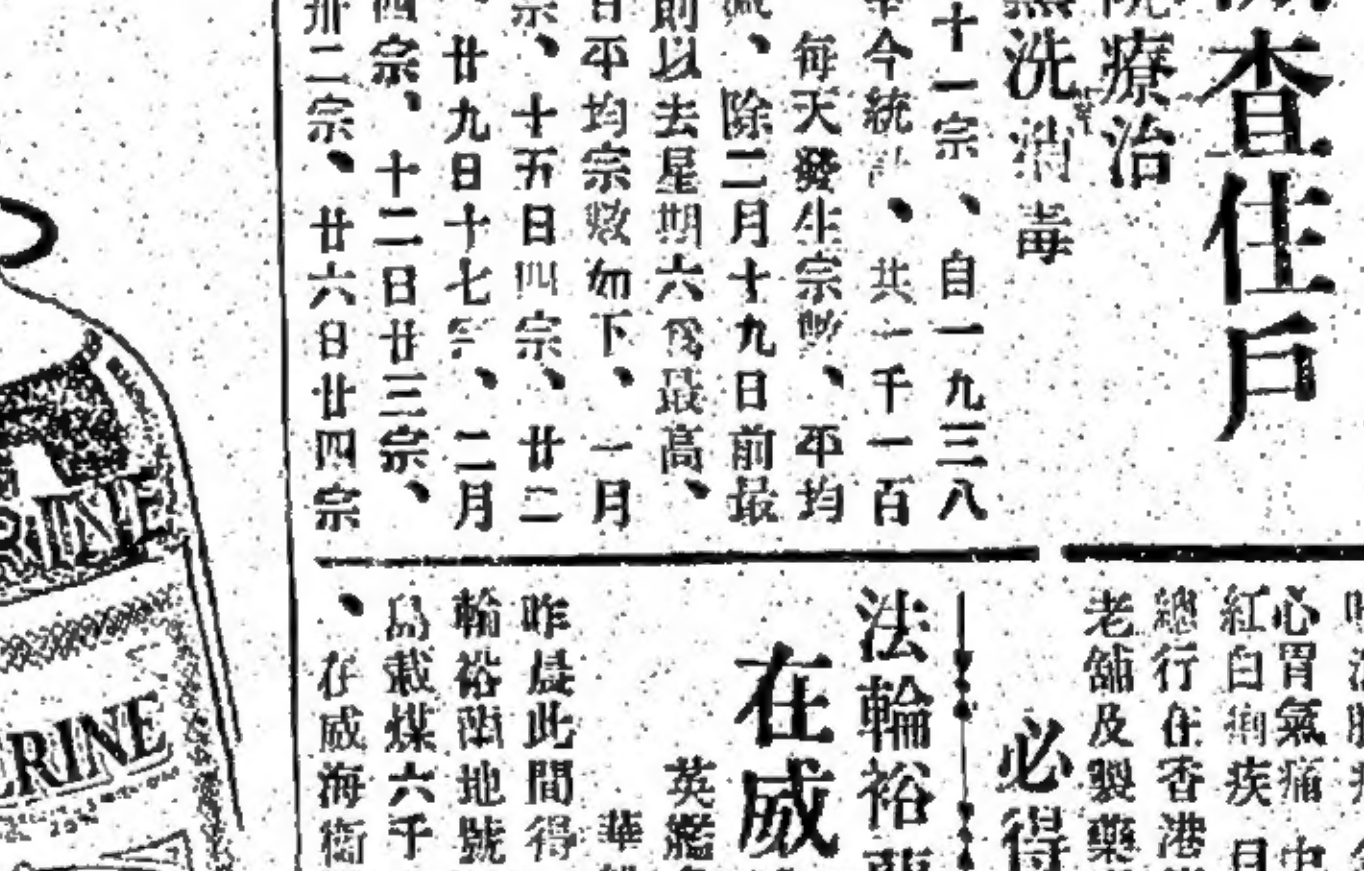 查住戶
院療治
洗消毒
十一宗、自一九三八
今統計、共一千一百
每天發生宗數、平均
、除二月十九日前最
則以去星期六為最高、
日平均宗數如下、一月
宗、十五日四宗、廿二
廿九日十七宗、二月
四宗、十二日廿三宗、
卅二宗、廿六日廿四宗
心胃氣痛
紅白痢疾
總行在香港
老舖及製藥
必得
法輪裕
在威
英艦
華
昨晨此間得
輪裕蘭地號
島載煤六千
、在威海衛
RINE
ERINE